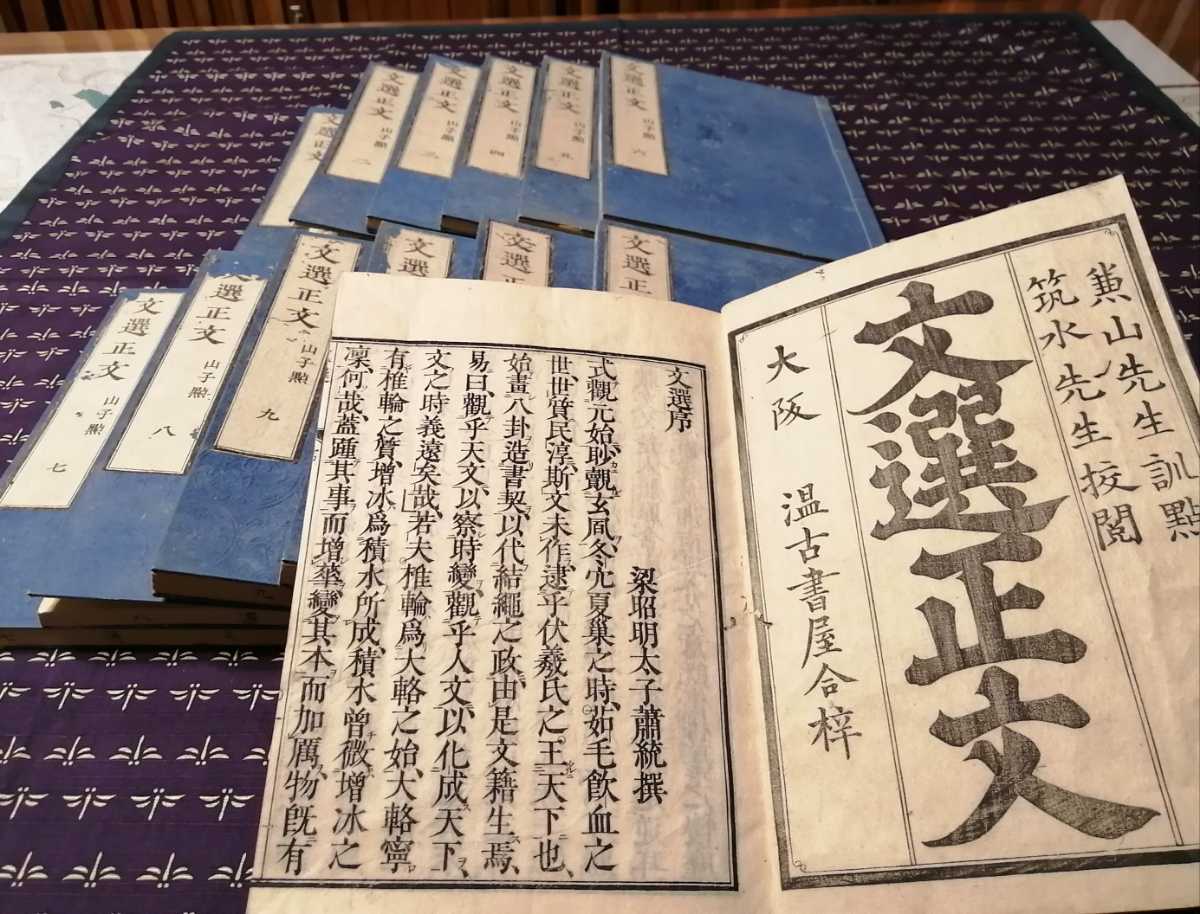 文選正文
文選正文 山子點 二
文選正文 山子點 三
文選正文 山子點 四
文選正文 山子點 五
文選正文 山子點 六
文選正文 山子點 七
選正文 山子點 八
文選正文 山子點 九
文選
文選正
文選正
兼山先生訓點
筑水先生挍閲
文選正文
大阪 温古書屋合梓
文選序
梁昭明太子蕭統撰
式觀元始、眇覿玄風、冬穴夏巢之時、茹毛飲血之
世、世質民淳、斯文未作、逮乎伏羲氏之王天下也、
始畫八卦、造書契、以代結繩之政、由是文籍生焉、
易曰、觀乎天文、以察時變、觀乎人文、以化成天下、
文之時義遠矣哉、若夫椎輪爲大輅之始、大輅寧
有椎輪之質、增冰爲積水所成、積水曾微增冰之
凛、何哉、蓋踵其事而增華、變其本而加厲、物既有